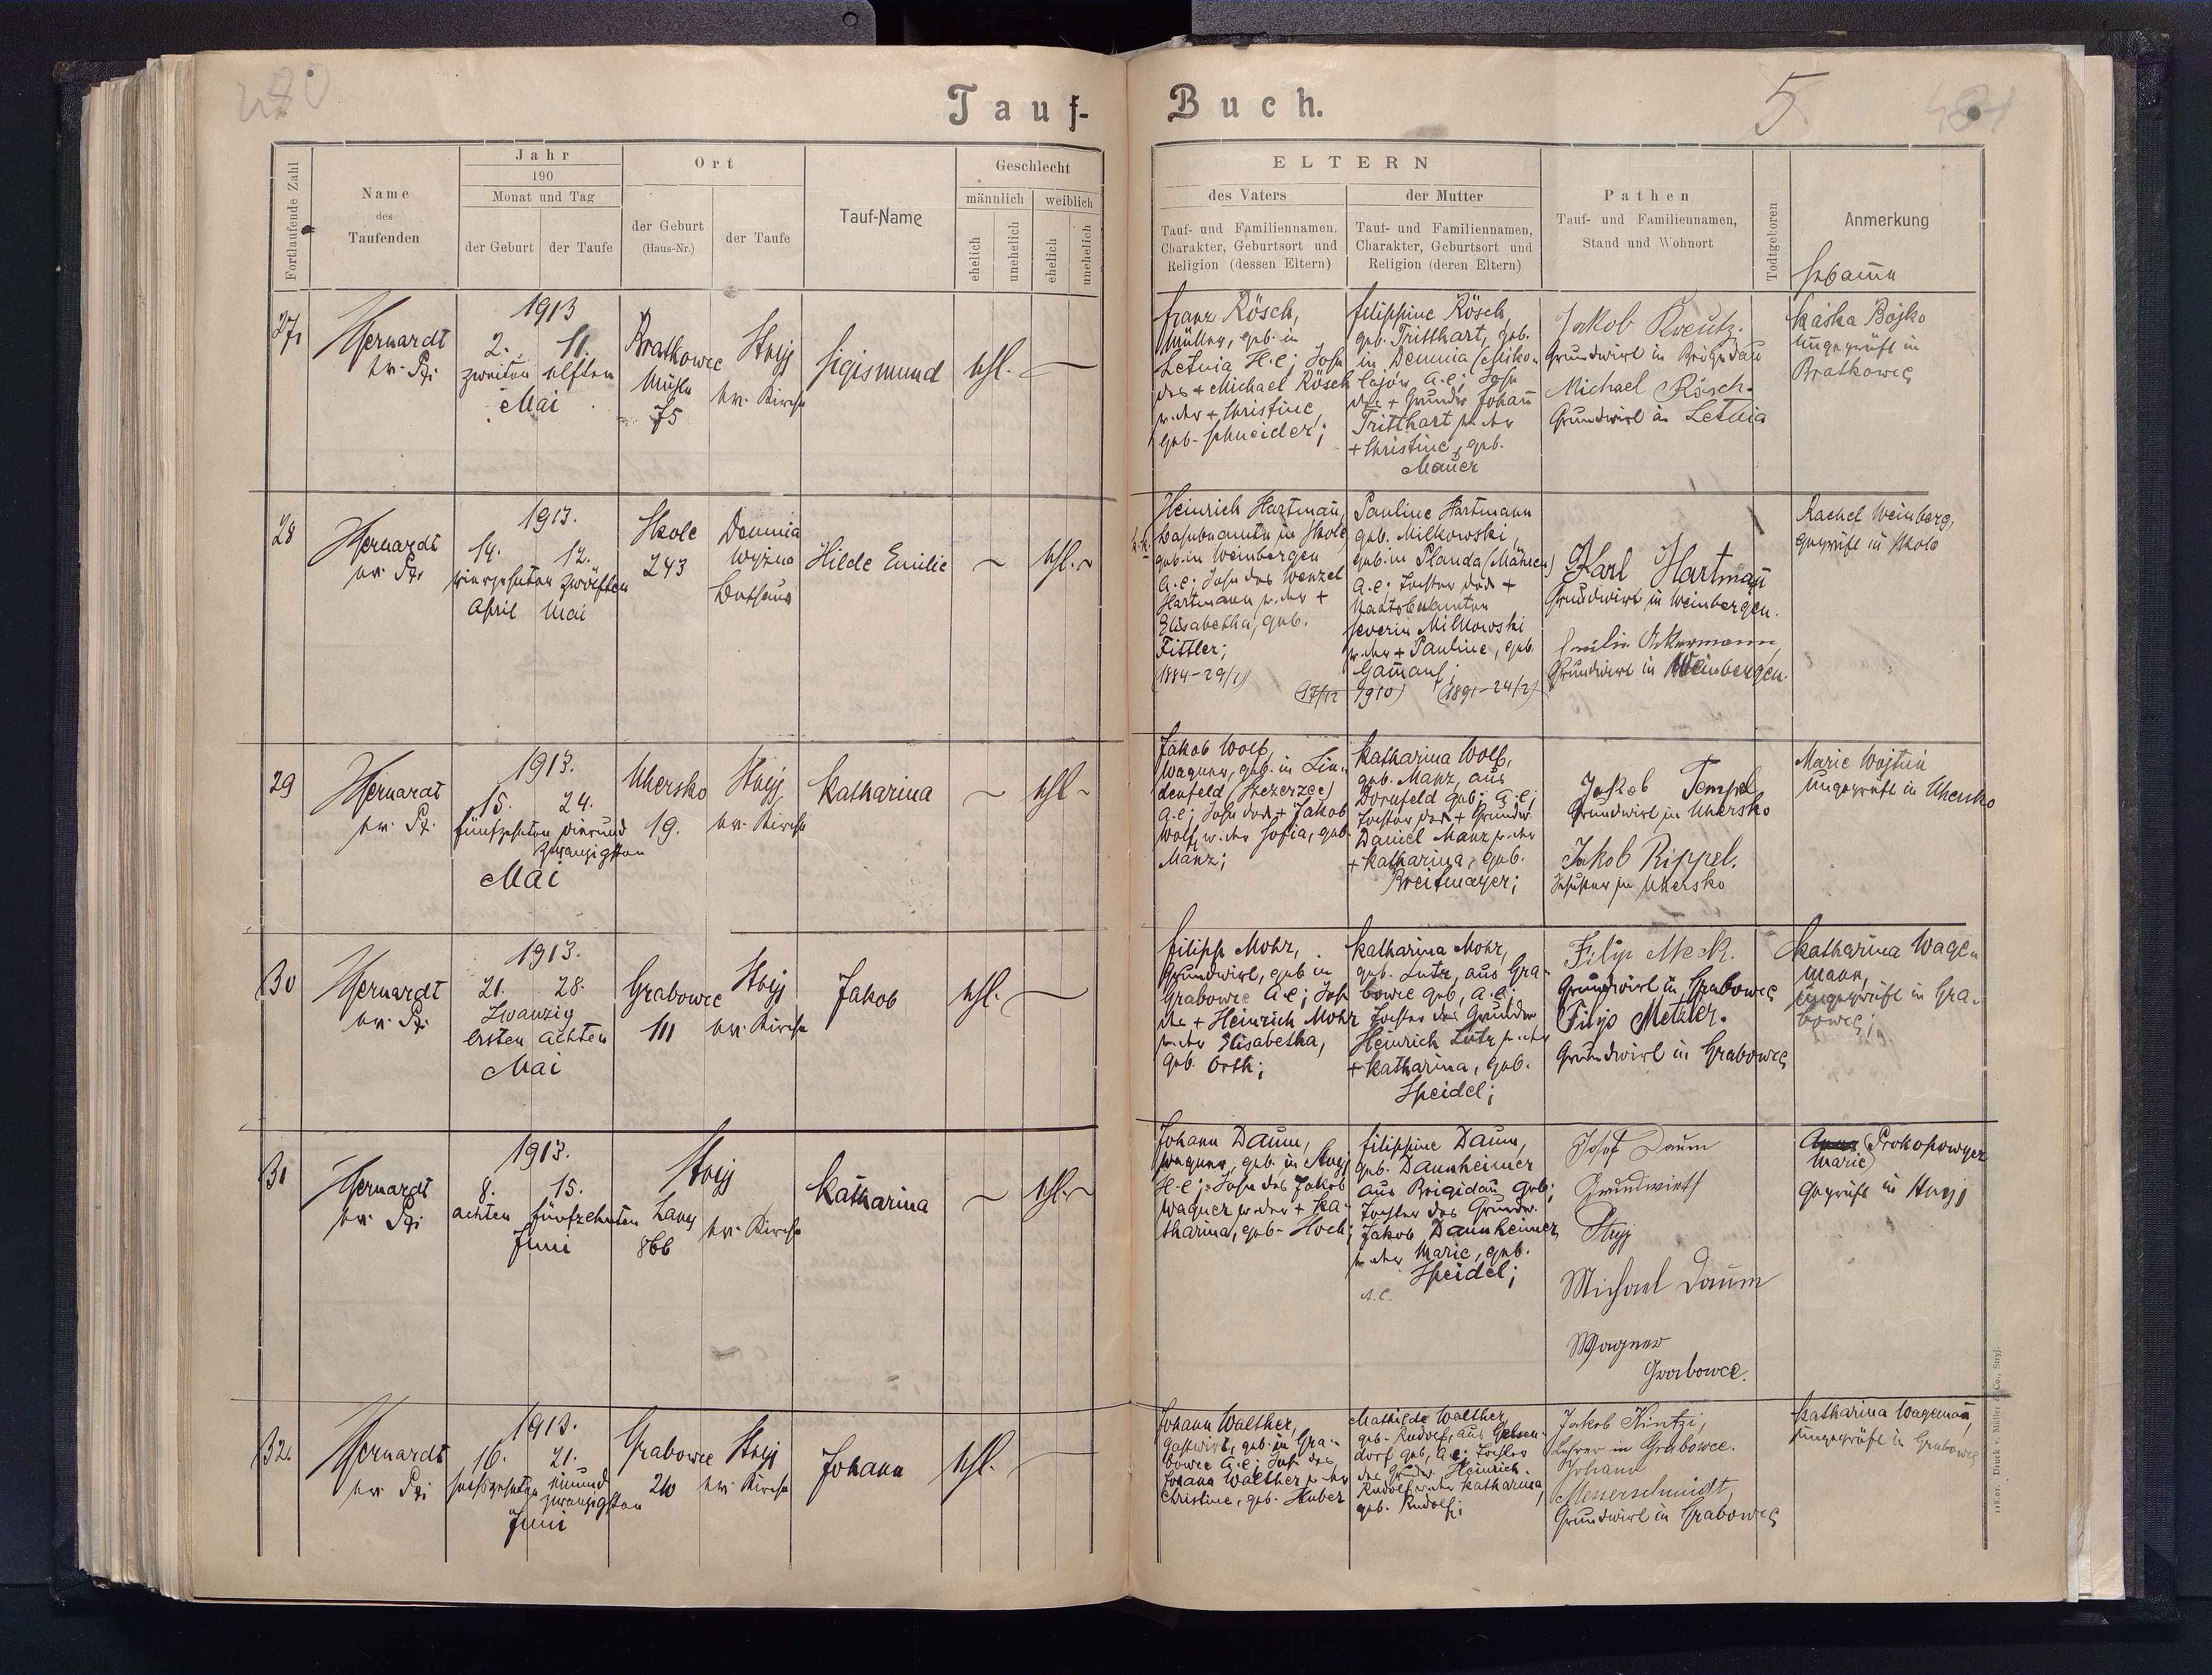 480
Tauf-
Buch.
5
481
Fortlaufende Zahl
Name
des
Taufenden
Jahr
190
Monat und Tag
der Geburt
der Taufe
Ort
der Geburt
(Haus-Nr.)
der Taufe
Tauf-Name
Geschlecht
männlich
weiblich
ehelich
unehelich
ehelich
unehelich
ELTERN
des Vaters
Tauf- und Familiennamen,
Charakter, Geburtsort und
Religion (dessen Eltern)
der Mutter
Tauf- und Familiennamen,
Charakter, Geburtsort und
Religion (deren Eltern)
Pathen
Tauf- und Familiennamen,
Stand und Wohnort
Todtgeboren
Anmerkung
Hebam̄e
27
1913
2. 11.
zweiten elften
Mai
Bratkowce
Mühle
75
Stryj
ev. Kirche
Sigismund
ehl.
Franz Rösch,
Müller, geb. in
Letnia H.C; Sohn
des + Michael Rösch
u. der + Christine,
geb. Schneider;
Filippine Rösch,
geb. Tritthart, geb.
in Demnia (Miko-
lajów, A.C;
des + Grundw. Johañ
Tritthart u. der
+ Christine, geb.
Mauer
Jakob Kreutz.
Grundwirt in Brigidau
Michael Rösch.
Grundwirt in Letnia
Kaśka Bojko
Ungeprüft in
Bratkowce
28
1913.
14. 12.
vierzehnten zwölften
April Mai
Skole
243
Demnia
wyżna
Bethaus
Hilde Emilie
ehl.
Heinrich Hartmañ,
Bahnbeamter in Skole,
geb. in Weinbergen
A.C; Sohn des Wenzel
Hartmann u. der +
Elisabetha, geb.
Fittler;
(1884-29/1)
Pauline Hartmann
geb. Milkowski,
geb. in Planda (Mähren)
A.C; Tochter des +
Staatsbeamten
Severin Milkowski
u. der + Pauline, geb.
(17/12 1910) (1891-24/2)
Karl Hartmañ
Grundwirt in Weinbergen.
Grundwirt in Weinbergen.
Rachel Weinberg,
geprüft in Skole
29
1913.
15. 24.
fünfzehnten vierund
zwanzigsten
Mai
Uhersko
19.
Stryj
ev. Kirche
Katharina
ehl.
Jakob Wolf,
Wagner, geb. in Lin-
denfeld (Szczerzec)
A.C; Sohn des + Jakob
Wolf u. der Sofia, geb.
Manz;
Katharina Wolf,
geb. Manz, aus
Dornfeld geb; A.C;
Tochter des + Grundw.
Daniel Manz u. der
+ Katharina, geb.
Breitmayer;
Jakob Tempel
Grundwirt in Uhersko
Jakob Rippel.
Schuster in Uhersko
Marie Wojtuń
Ungeprüft in Uhersko
30
1913.
21. 28.
Zwanzig
ersten achten
Mai
Grabowce
111
Stryj
ev. Kirche
Jakob
ehl.
Filipp Mohr,
Grundwirt, geb. in
Grabowce A.C; Sohn
des + Heinrich Mohr
u. der Elisabetha,
geb. Orth;
Katharina Mohr,
geb. Lutz, aus Gra-
bowce geb, A.C;
Tochter des Grundw.
Heinrich Lutz u. der
+ Katharina, geb.
Speidel;
Filip Meck.
Grundwirt in Grabowce
Filip Metzler.
Grundwirt in Grabowce
Katharina Wagen
mann,
Ungeprüft in Gra-
bowce;
31
1913.
8. 15.
achten fünfzehnten
Juni
Stryj
Lany
866
ev. Kirche
Katharina
ehl.
Johann Daum,
Wagner, geb. in Stryj
H.C; Sohn des Jakob
Wagner u. der + Ka-
tharina, geb. Hoch;
Filippine Daum,
geb. Daunheimer
aus Brigidau geb;
Tochter des Grundw.
Jakob Daunheimer
u. der Marie, geb.
Speidel;
A.C.
Josef Daum
Grundwirth
Stryj
Michael Daum
Wagner
Grabowce.
Prokopowycz
Marie)
Geprüft in Stryj
32.
1913.
16. 21.
sechszehnten einund
zwanzigsten
Juni
Grabowce
Stryj
ev. Kirche
Johann
ehl.
Johann Walther,
Gastwirt, geb. in Gra-
bowce A.C; Sohn des
Johann Walther u. der
Christine, geb. Huber
Mathilde Walther,
geb. Rudolf, aus Gelsen-
dorf geb, A.C; Tochter
des Grundw. Heinrich
Rudolf u. der Katharina,
geb. Rudolf;
Jakob Kintzi,
Lehrer in Grabowce.
Johann
Messerschmidt,
Grundwirt in Grabowce
Katharina Wagemañ,
Ungeprüft in Grabowce
118.01. Druck v. Müller & Co., Stryj.